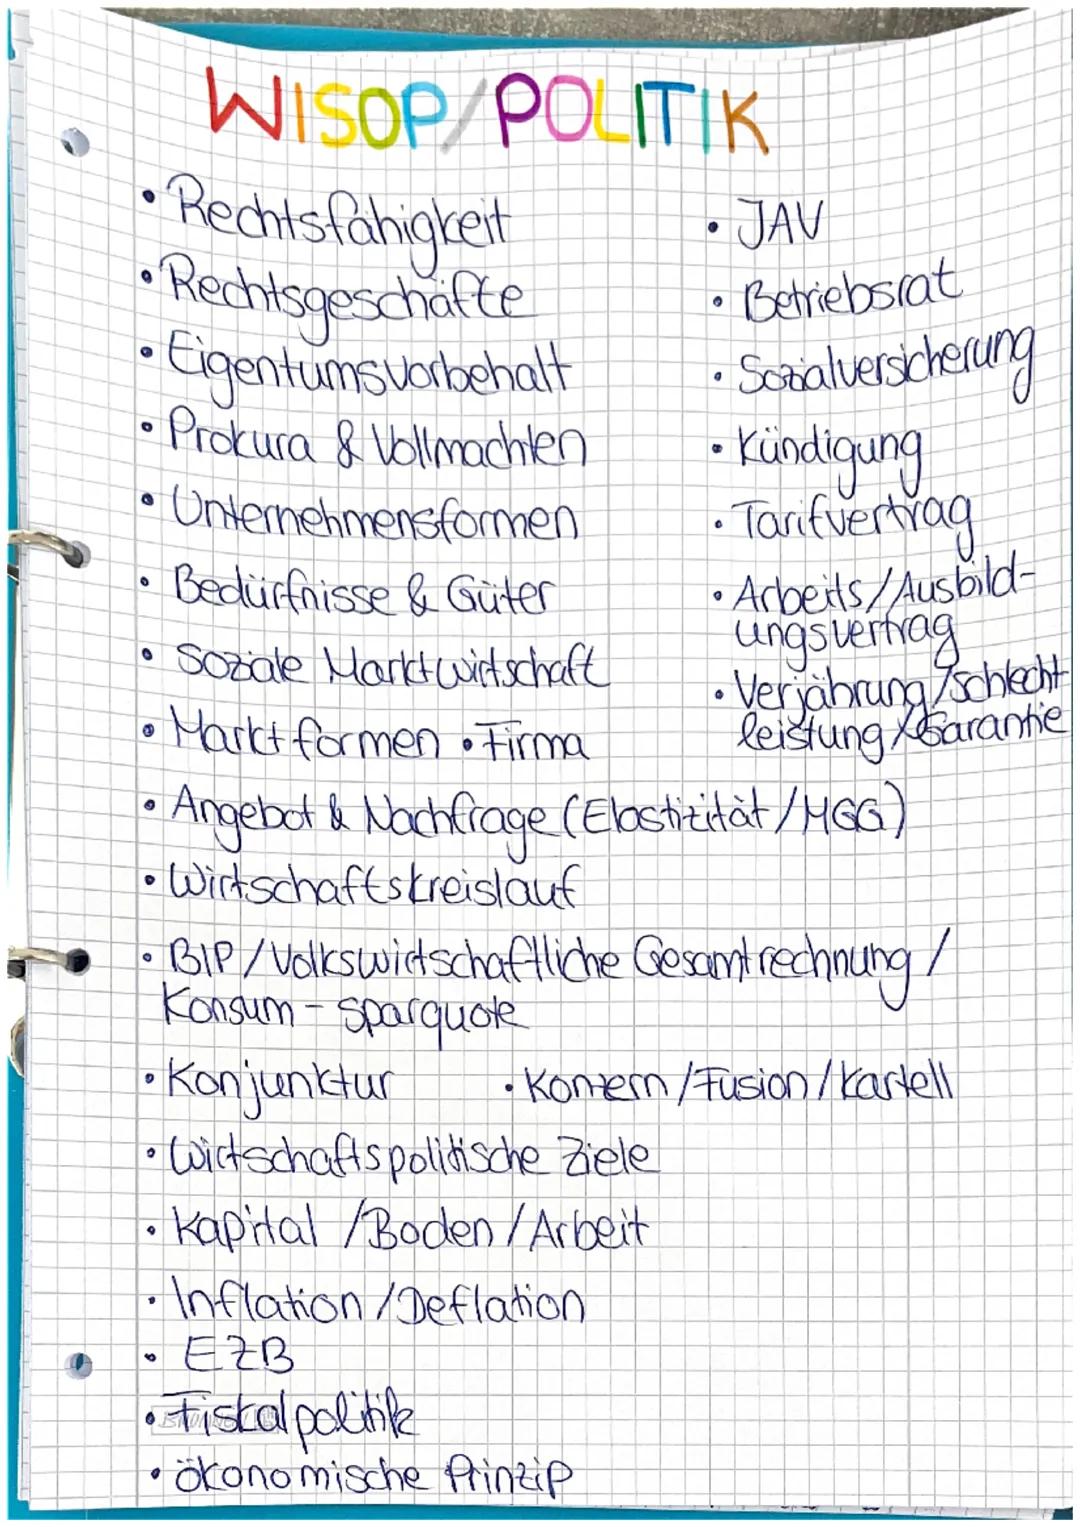 WISOP/POLITIK
• Rechtsfähigkeit
• Rechtsgeschäfte
• Eigentumsvorbehalt
• Prokura & Vollmachten
• Unternehmensformen
• Bedürfnisse & Güter
• Soziale Marktwirtschaft
• Marktformen • Firma
• JAV
• Betriebsrat
• Sozialversicherung
• Kündigung
• Tarifvertrag
• Arbeits/Ausbild-
ungsvertrag
• Verjährung/Schlecht
leistung/Garantie
• Angebot & Nachfrage (Elastizität/MGG)
• Wirtschaftskreislauf
• BIP/Volkswirtschaftliche Gesamtrechnung/
Konsum-sparquote
• Konjunktur • Konzern/Fusion/Kartell
• Wirtschaftspolitische Ziele
• Kapital/Boden/Arbeit
• Inflation/Deflation
• EZB
• Fiskalpolitik
• ökonomische Prinzip